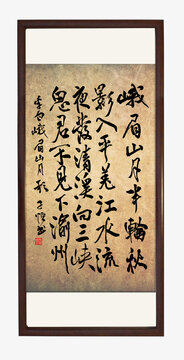 峨眉山月半輪秋
影入平羌江水流
夜發清溪向三峽
思君不見下渝州
李白峨眉山月歌